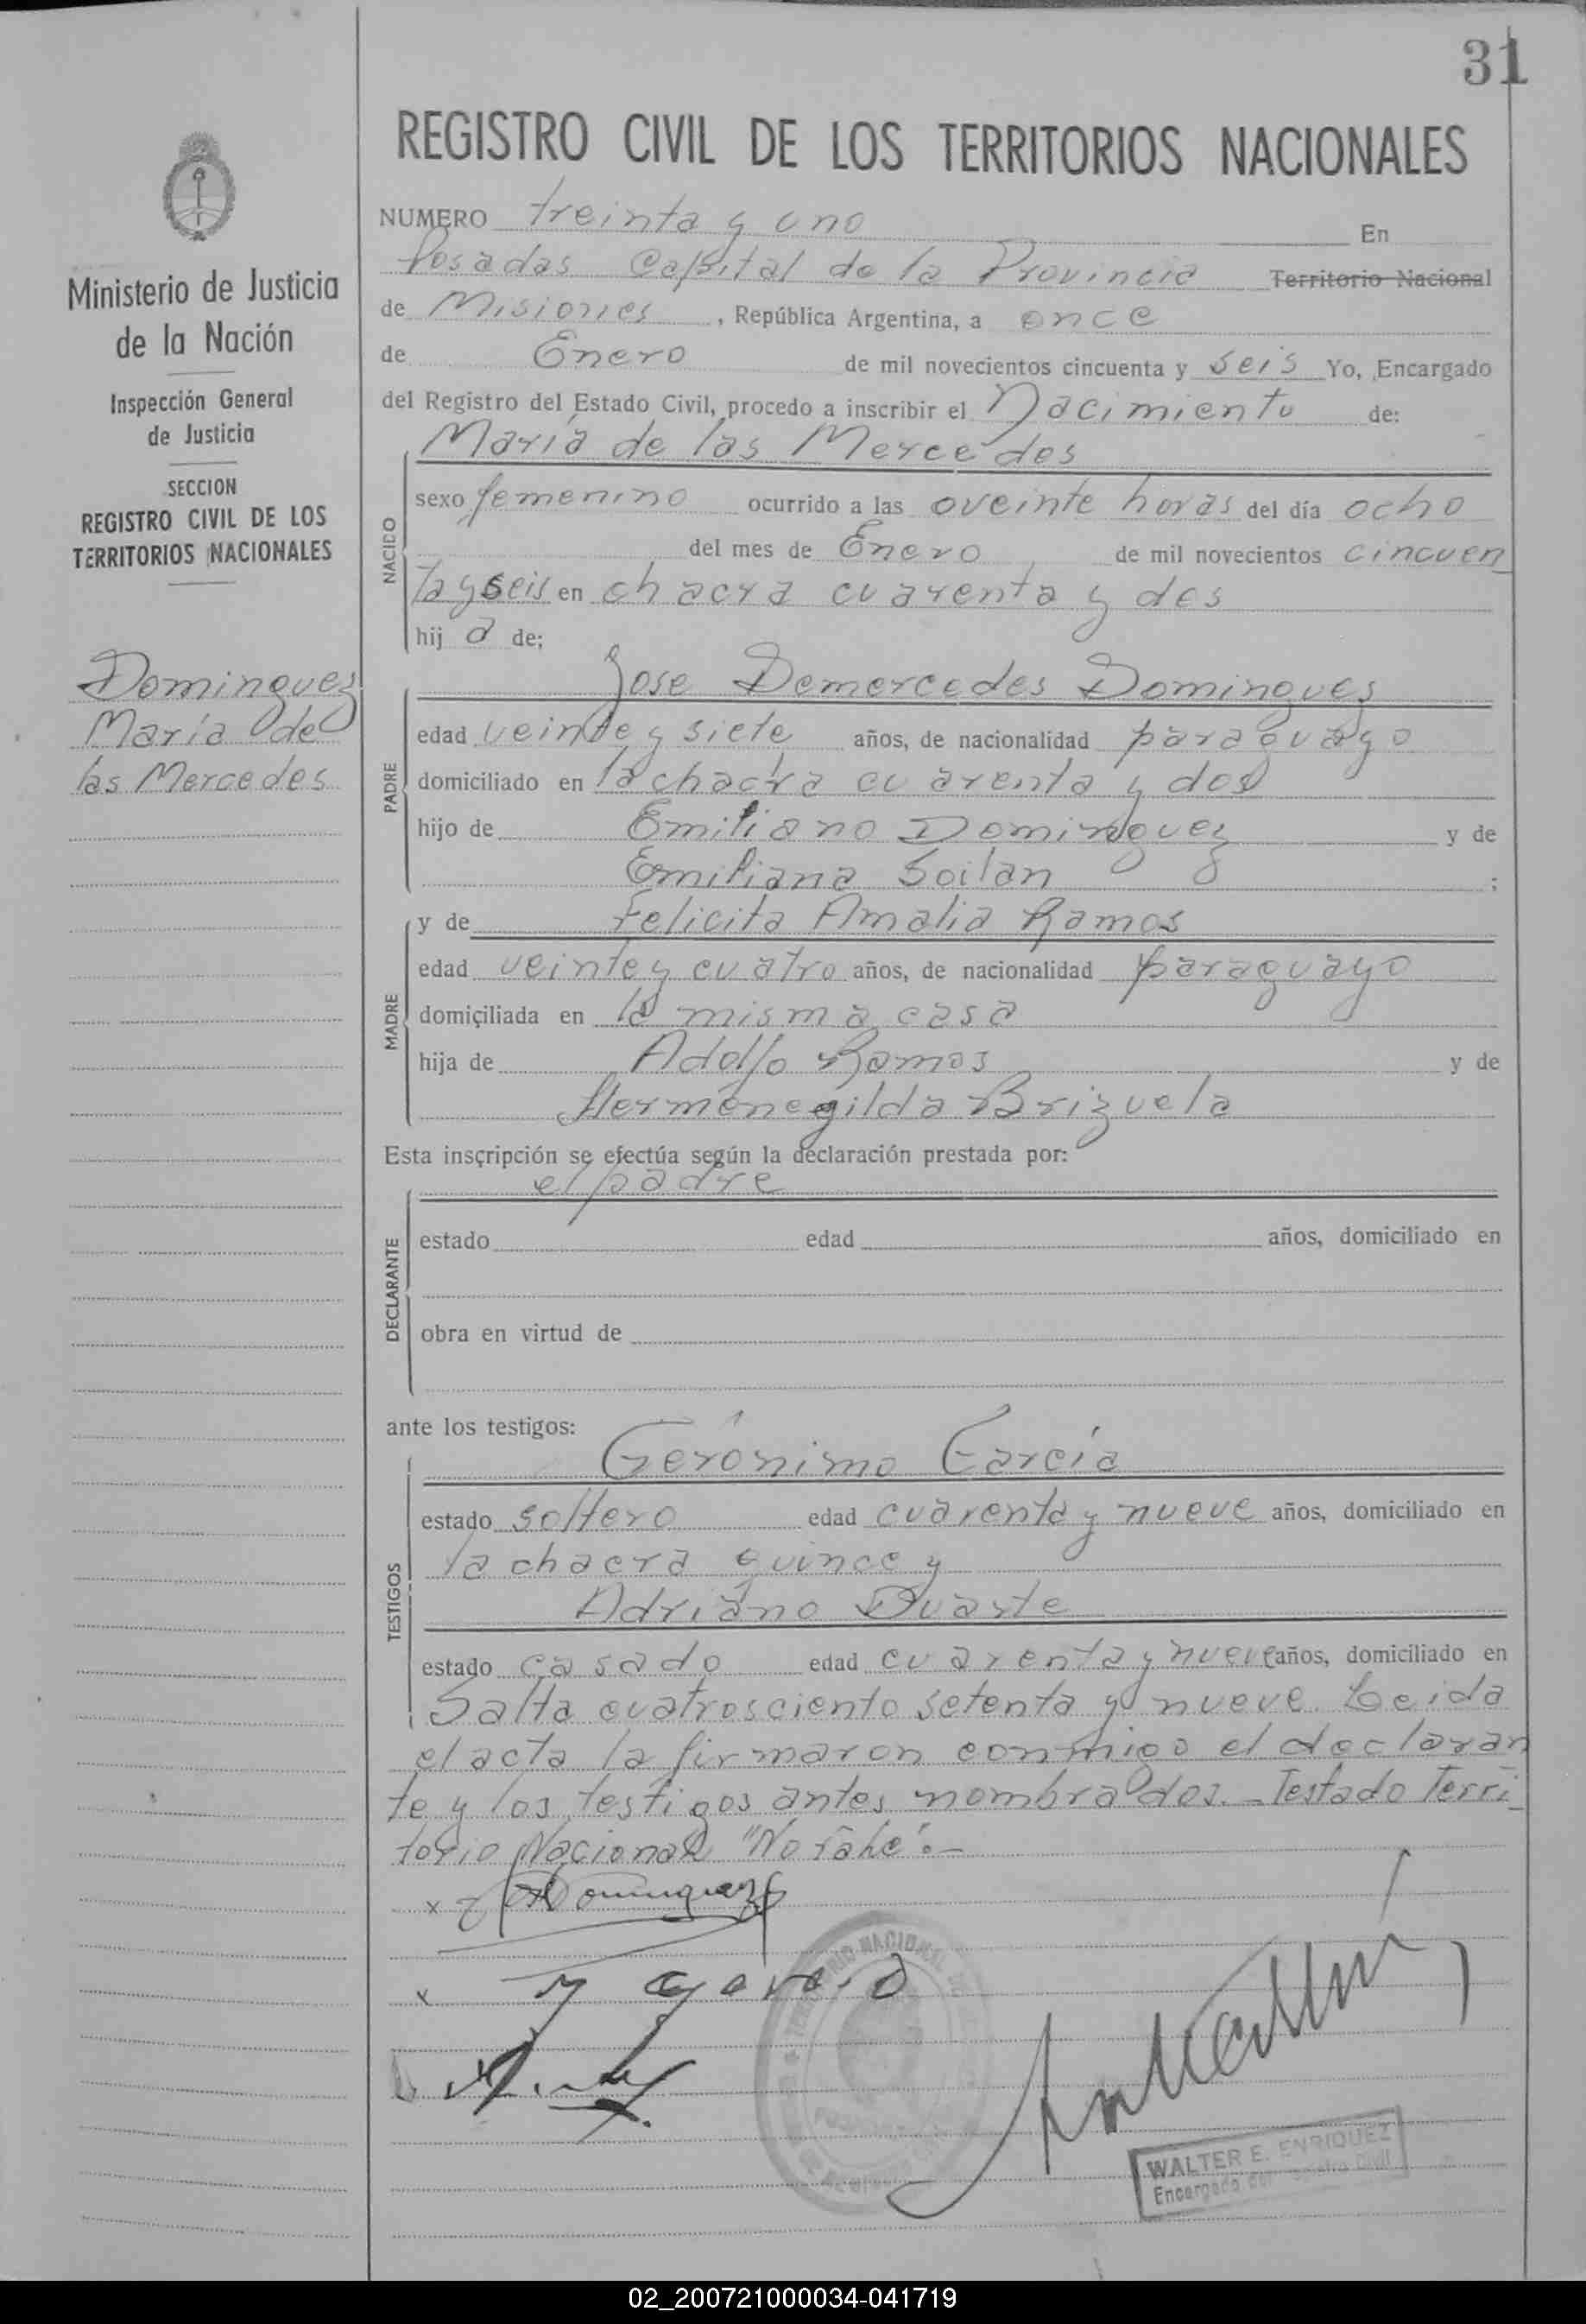 31
REGISTRO CIVIL DE LOS TERRITORIOS NACIONALES
Ministerio de Justicia
de la Nación
Inspección General
de Justicia
SECCION
REGISTRO CIVIL DE LOS
TERRITORIOS NACIONALES
Dominguez
María de
las Mercedes
NUMERO treinta y uno En
Posadas Capital de la Provincia Territorio Nacional
de Misiones, República Argentina, a once
de Enero de mil novecientos cincuenta y seis Yo, Encargado
del Registro del Estado Civil, procedo a inscribir el Nacimiento de:
María de las Mercedes
NACIDO
sexo femenino ocurrido a las oveinte horas del día ocho
del mes de Enero de mil novecientos cincuen
ta y seis en chacra cuarenta y dos
hij a de;
PADRE
Jose Demercedes Dominguez
edad veinte y siete años, de nacionalidad paraguayo
domiciliado en la chacra cuarenta y dos
hijo de Emiliano Dominguez y de
Emiliana Soilan ;
MADRE
y de Felicita Amalia Ramos
edad veinte y cuatro años, de nacionalidad paraguayo
domiciliada en la misma casa
hija de Adolfo Ramos y de
Hermenegilda Brizuela
Esta inscripción se efectúa según la declaración prestada por:
el padre
DECLARANTE
estado edad años, domiciliado en
obra en virtud de
ante los testigos:
TESTIGOS
Gerónimo García
estado soltero edad cuarenta y nueve años, domiciliado en
la chacra quince y
Adriano Duarte
estado casado edad cuarenta y nueve años, domiciliado en
Salta cuatrosciento setenta y nueve. Leida
el acta la firmaron conmigo el declaran
te y los testigos antes nombrados. - Testado Terri
torio Nacional "No vale".-
x Dominguez
x
WALTER E. ENRIQUEZ
Encargado del Registro Civil
02_200721000034-041719